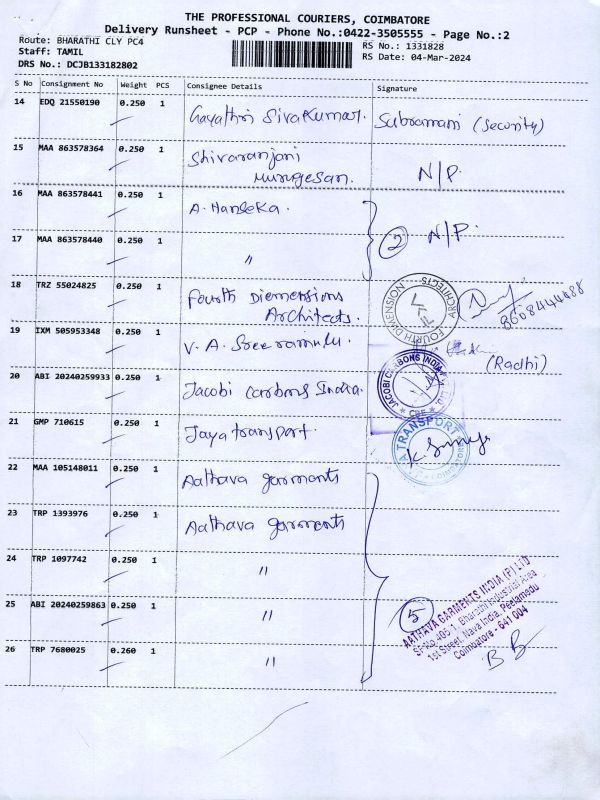 THE PROFESSIONAL COURIERS, COIMBATORE
Delivery Runsheet - PCP - Phone No.:0422-3505555 - Page No.:2
Route: BHARATHI CLY PC4
RS No.: 1331828
Staff: TAMIL
RS Date: 04-Mar-2024
DRS No.: DCJB133182802
S No Consignment No Weight PCS Consignee Details Signature
14 EDQ 21550190 0.250 1 Gayathri SivaKumar. Subramani (Security)
15 MAA 863578364 0.250 1 Shivaranjani
Murugesan. N/P.
16 MAA 863578441 0.250 1 A. Hanseka.
2 N/P.
17 MAA 863578440 0.250 1 "
18 TRZ 55024825 0.250 1 Fourth Diemensions
Architects.
FOURTH DIMENSIONS ARCHITECTS
8608444488
19 IXM 505953348 0.250 1 V. A. Sreeramulu.
(Radhi)
20 ABI 20240259933 0.250 1 Jacobi Carbons India.
JACOBI CARBONS INDIA
CBE
21 GMP 710615 0.250 1 Jayatransport.
TRANSPORT
22 MAA 105148011 0.250 1 Aathava garments
23 TRP 1393976 0.250 1 Aathava garments
24 TRP 1097742 0.250 1 "
25 ABI 20240259863 0.250 1 "
5
AATHAVA GARMENTS INDIA (P) LTD
SF No 409-1, Bharathi Industrial Area
1st Street, Nava India, Peelamedu
Coimbatore - 641 004
26 TRP 7680025 0.260 1 "